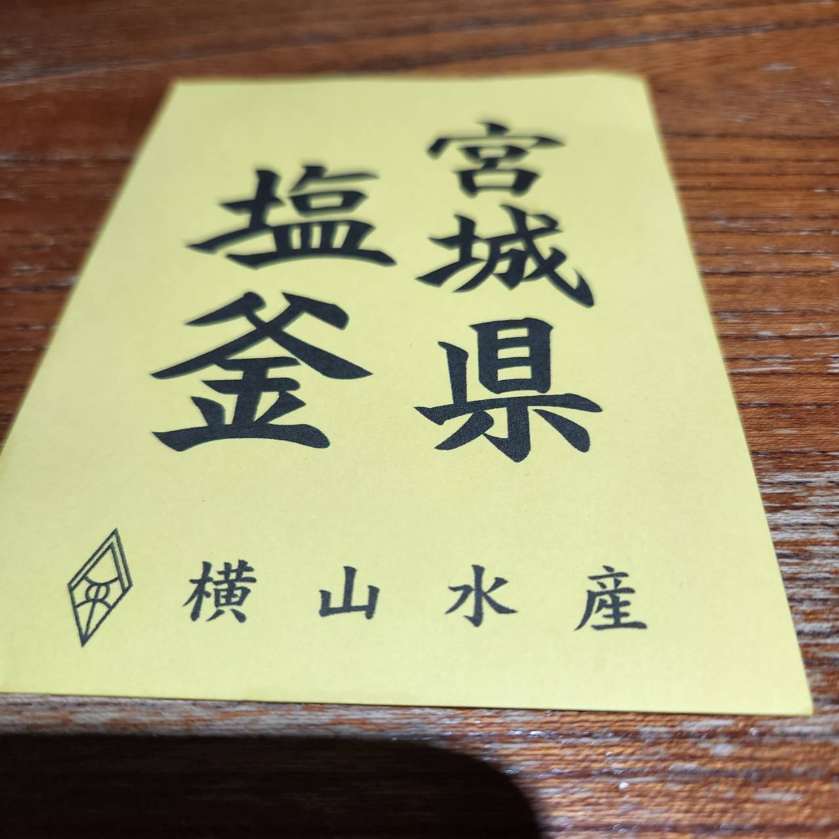 宮城県
塩釜
横山水産